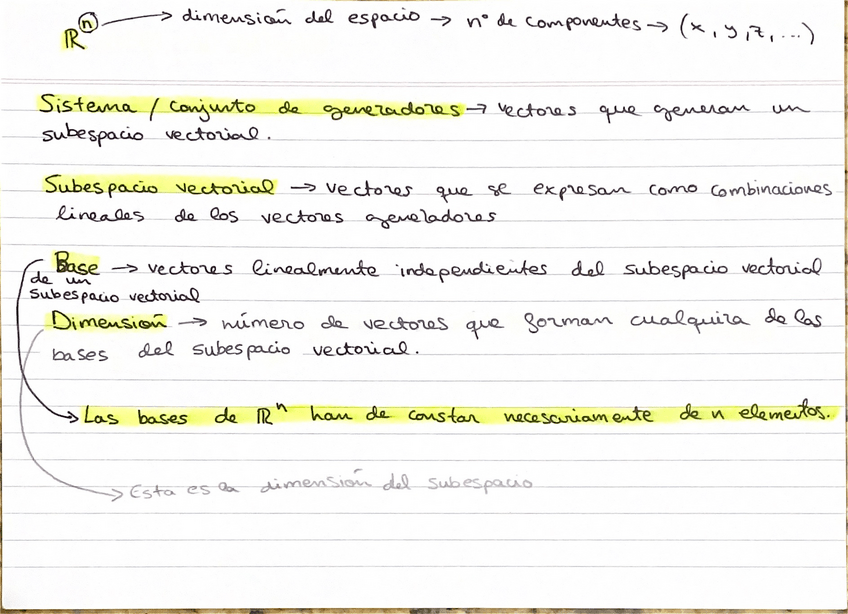 ℝⁿ → dimensión del espacio → nº de componentes → (x, y, z, ...)
Sistema / conjunto de generadores → vectores que generan un
subespacio vectorial.
Subespacio vectorial → vectores que se expresan como combinaciones
lineales de los vectores generadores
Base → vectores linealmente independientes del subespacio vectorial
de un
subespacio vectorial
Dimensión → número de vectores que forman cualquira de las
bases del subespacio vectorial.
→ Las bases de ℝⁿ han de constar necesariamente de n elementos.
→ Esta es la dimensión del subespacio